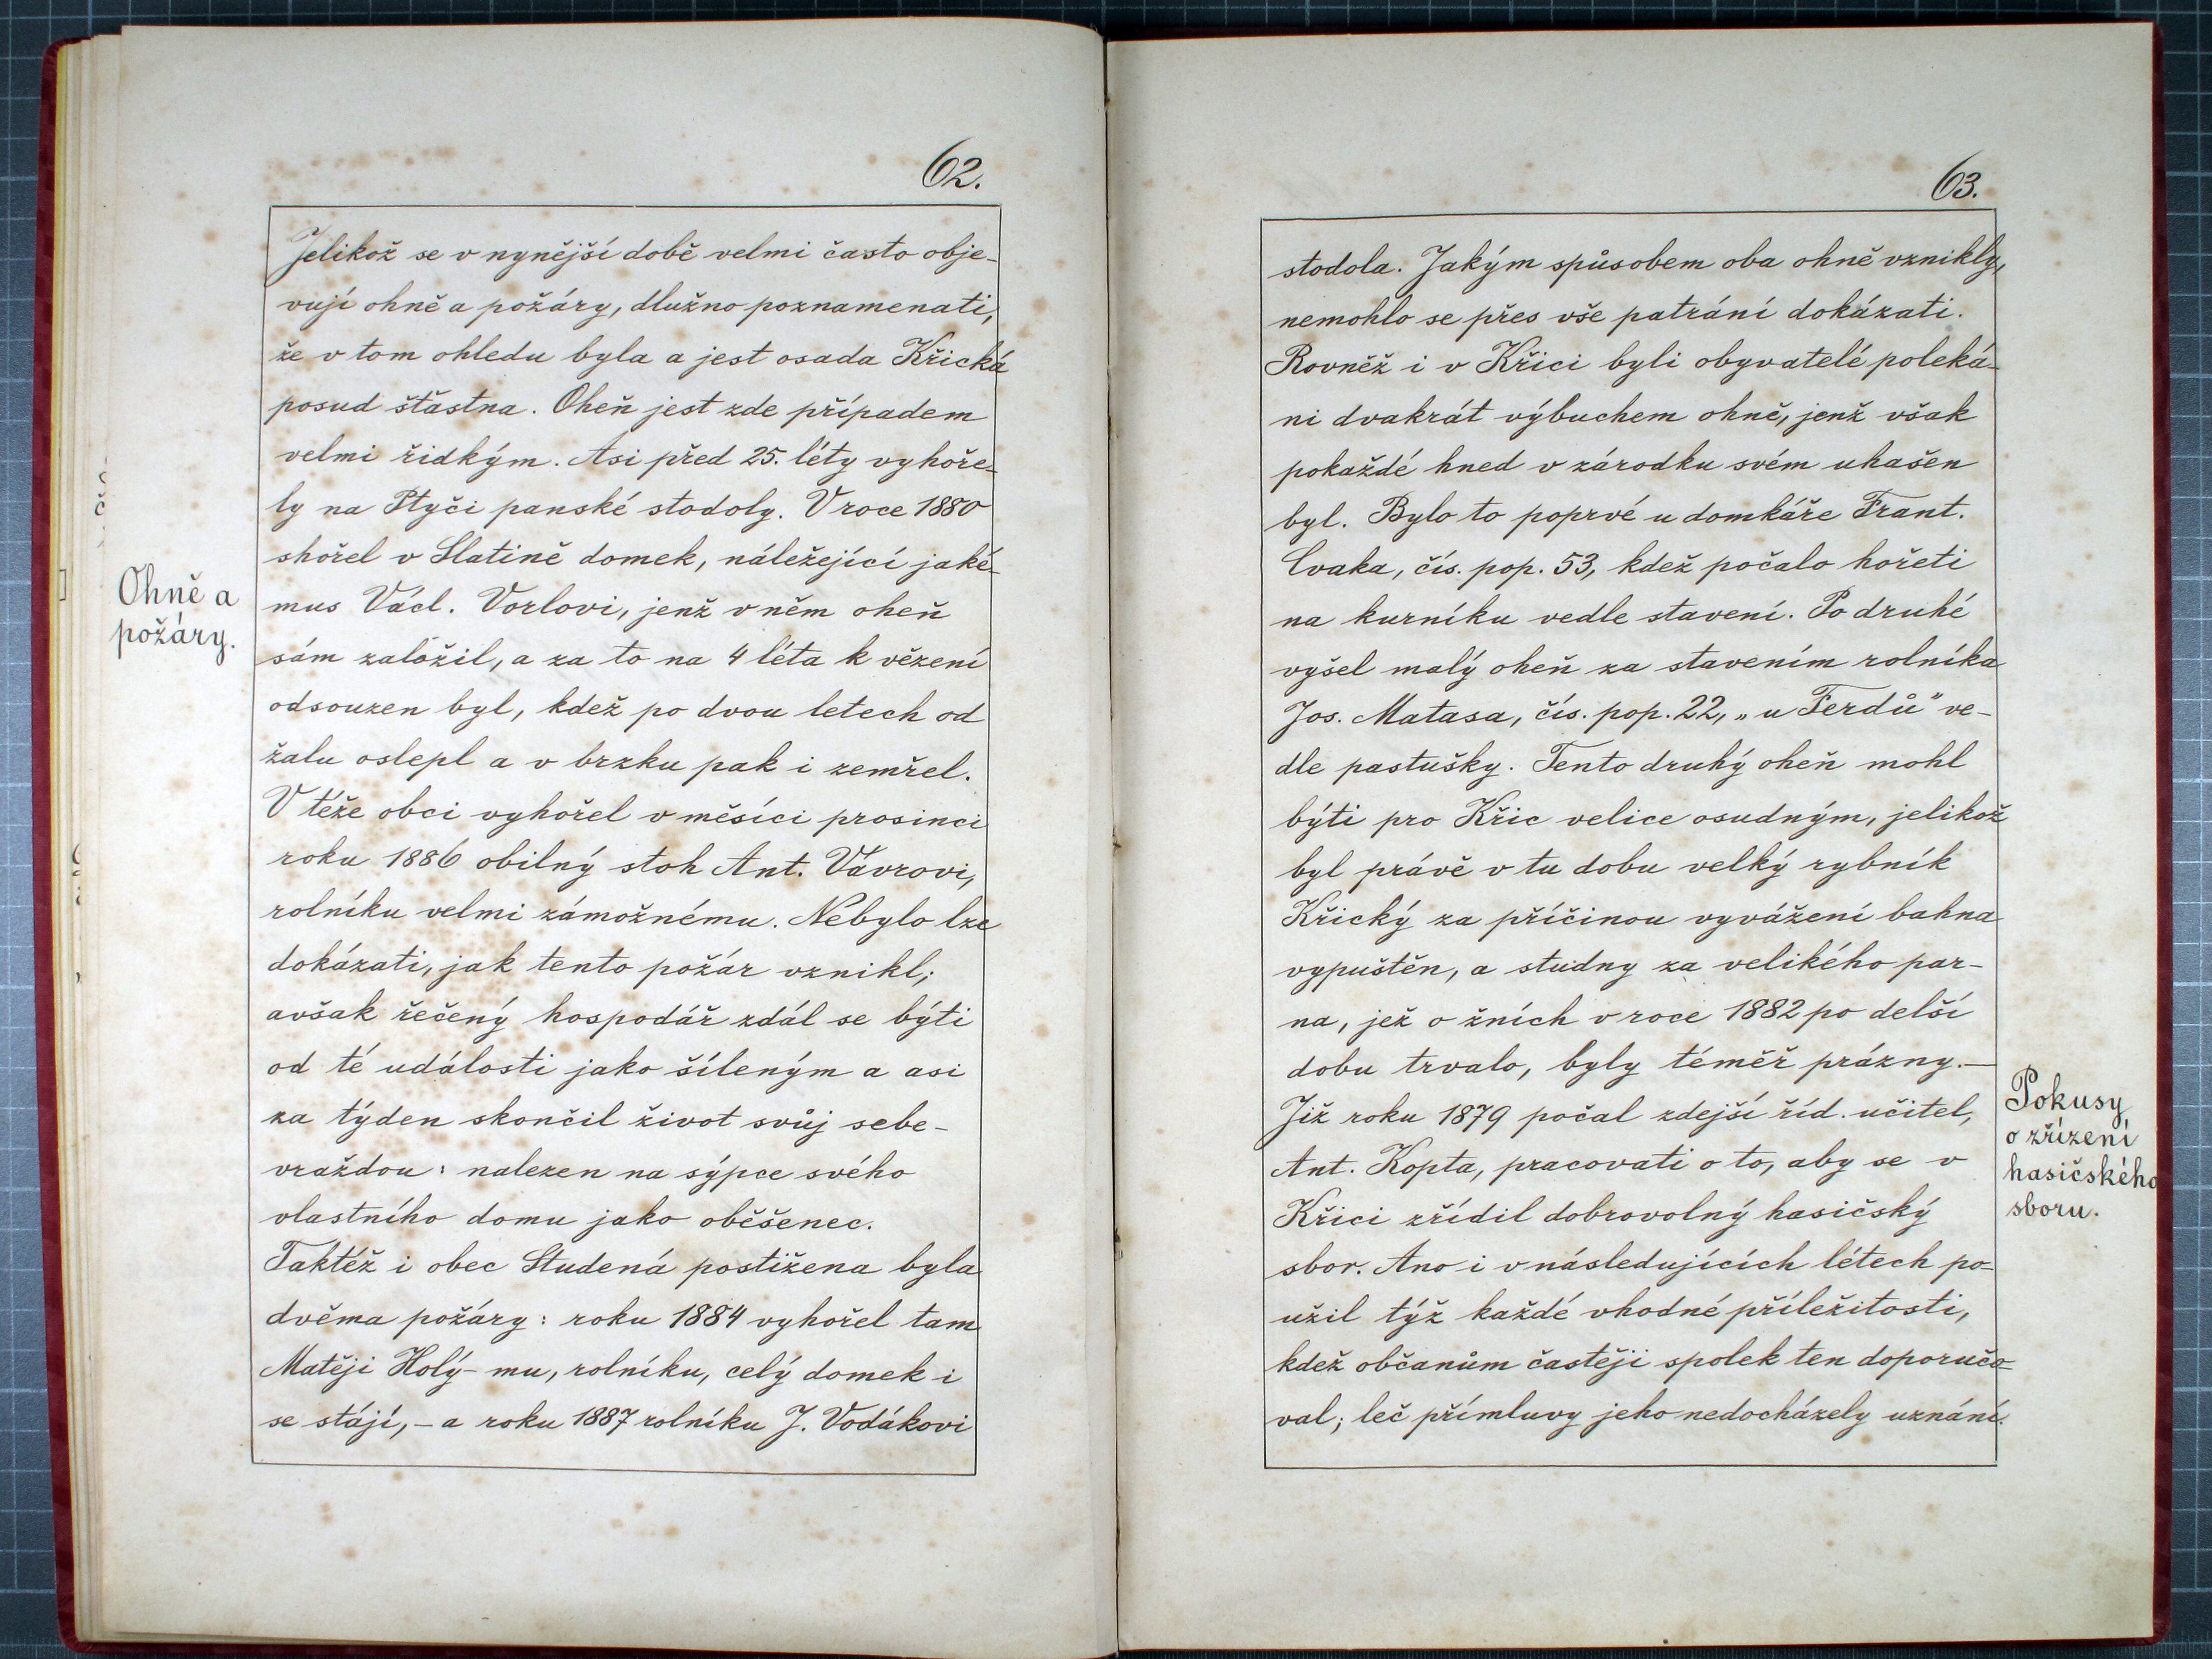 62.
Jelikož se v nynější době velmi často obje-
vují ohně a požáry, dlužno poznamenati,
že v tom ohledu byla a jest osada Křická
posud šťastna. Oheň jest zde případem
velmi řidkým. Asi před 25. léty vyhoře-
ly na Ptyči panské stodoly. V roce 1880
shořel v Slatině domek, náležející jaké-
mus Václ. Vorlovi, jenž v něm oheň
sám založil, a za to na 4 léta k vězení
odsouzen byl, kdež po dvou letech od
žalu oslepl a v brzku pak i zemřel.
V téže obci vyhořel v měsíci prosinci
roku 1886 obilný stoh Ant. Vávrovi,
rolníku velmi zámožnému. Nebylo lze
dokázati, jak tento požár vznikl;
avšak řečený hospodář zdál se býti
od té události jako šíleným a asi
za týden skončil život svůj sebe-
vraždou: nalezen na sýpce svého
vlastního domu jako oběšenec.
Taktéž i obec Studená postižena byla
dvěma požáry: roku 1884 vyhořel tam
Matěji Holý-mu, rolníku, celý domek i
se stájí, - a roku 1887 rolníku J. Vodákovi
Ohně a
požáry.
63.
stodola. Jakým spůsobem oba ohně vznikly,
nemohlo se přes vše patrání dokázati.
Rovněž i v Křici byli obyvatelé poleká-
ni dvakrát výbuchem ohně, jenž však
pokaždé hned v zárodku svém uhašen
byl. Bylo to poprvé u domkáře Frant.
Cvaka, čís. pop. 53, kdež počalo hořeti
na kurníku vedle stavení. Po druhé
vyšel malý oheň za stavením rolníka
Jos. Matasa, čís. pop. 22, „u Ferdů" ve-
dle pastušky. Tento druhý oheň mohl
býti pro Křic velice osudným, jelikož
byl právě v tu dobu velký rybník
Křický za příčinou vyvážení bahna
vypuštěn, a studny za velikého par-
na, jež o žních v roce 1882 po delší
dobu trvalo, byly téměř prázny. —
Již roku 1879 počal zdejší říd. učitel,
Ant. Kopta, pracovati o to, aby se v
Křici zřídil dobrovolný hasičský
sbor. Ano i v následujících létech po-
užil týž každé vhodné příležitosti,
kdež občanům častěji spolek ten doporučo-
val; leč přímluvy jeho nedocházely uznání.
Pokusy
o zřízení
hasičského
sboru.